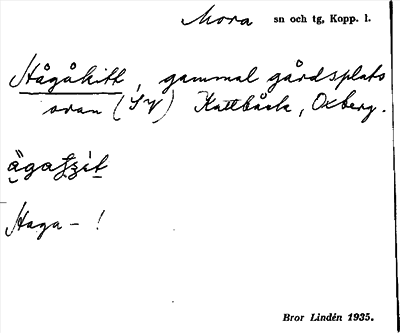 Mora sn och tg, Kopp. l.
Hågåkitt, gammal gårdsplats
ovan (SV) Kattbäck, Oxberg.
Haga - !
Bror Lindén 1935.